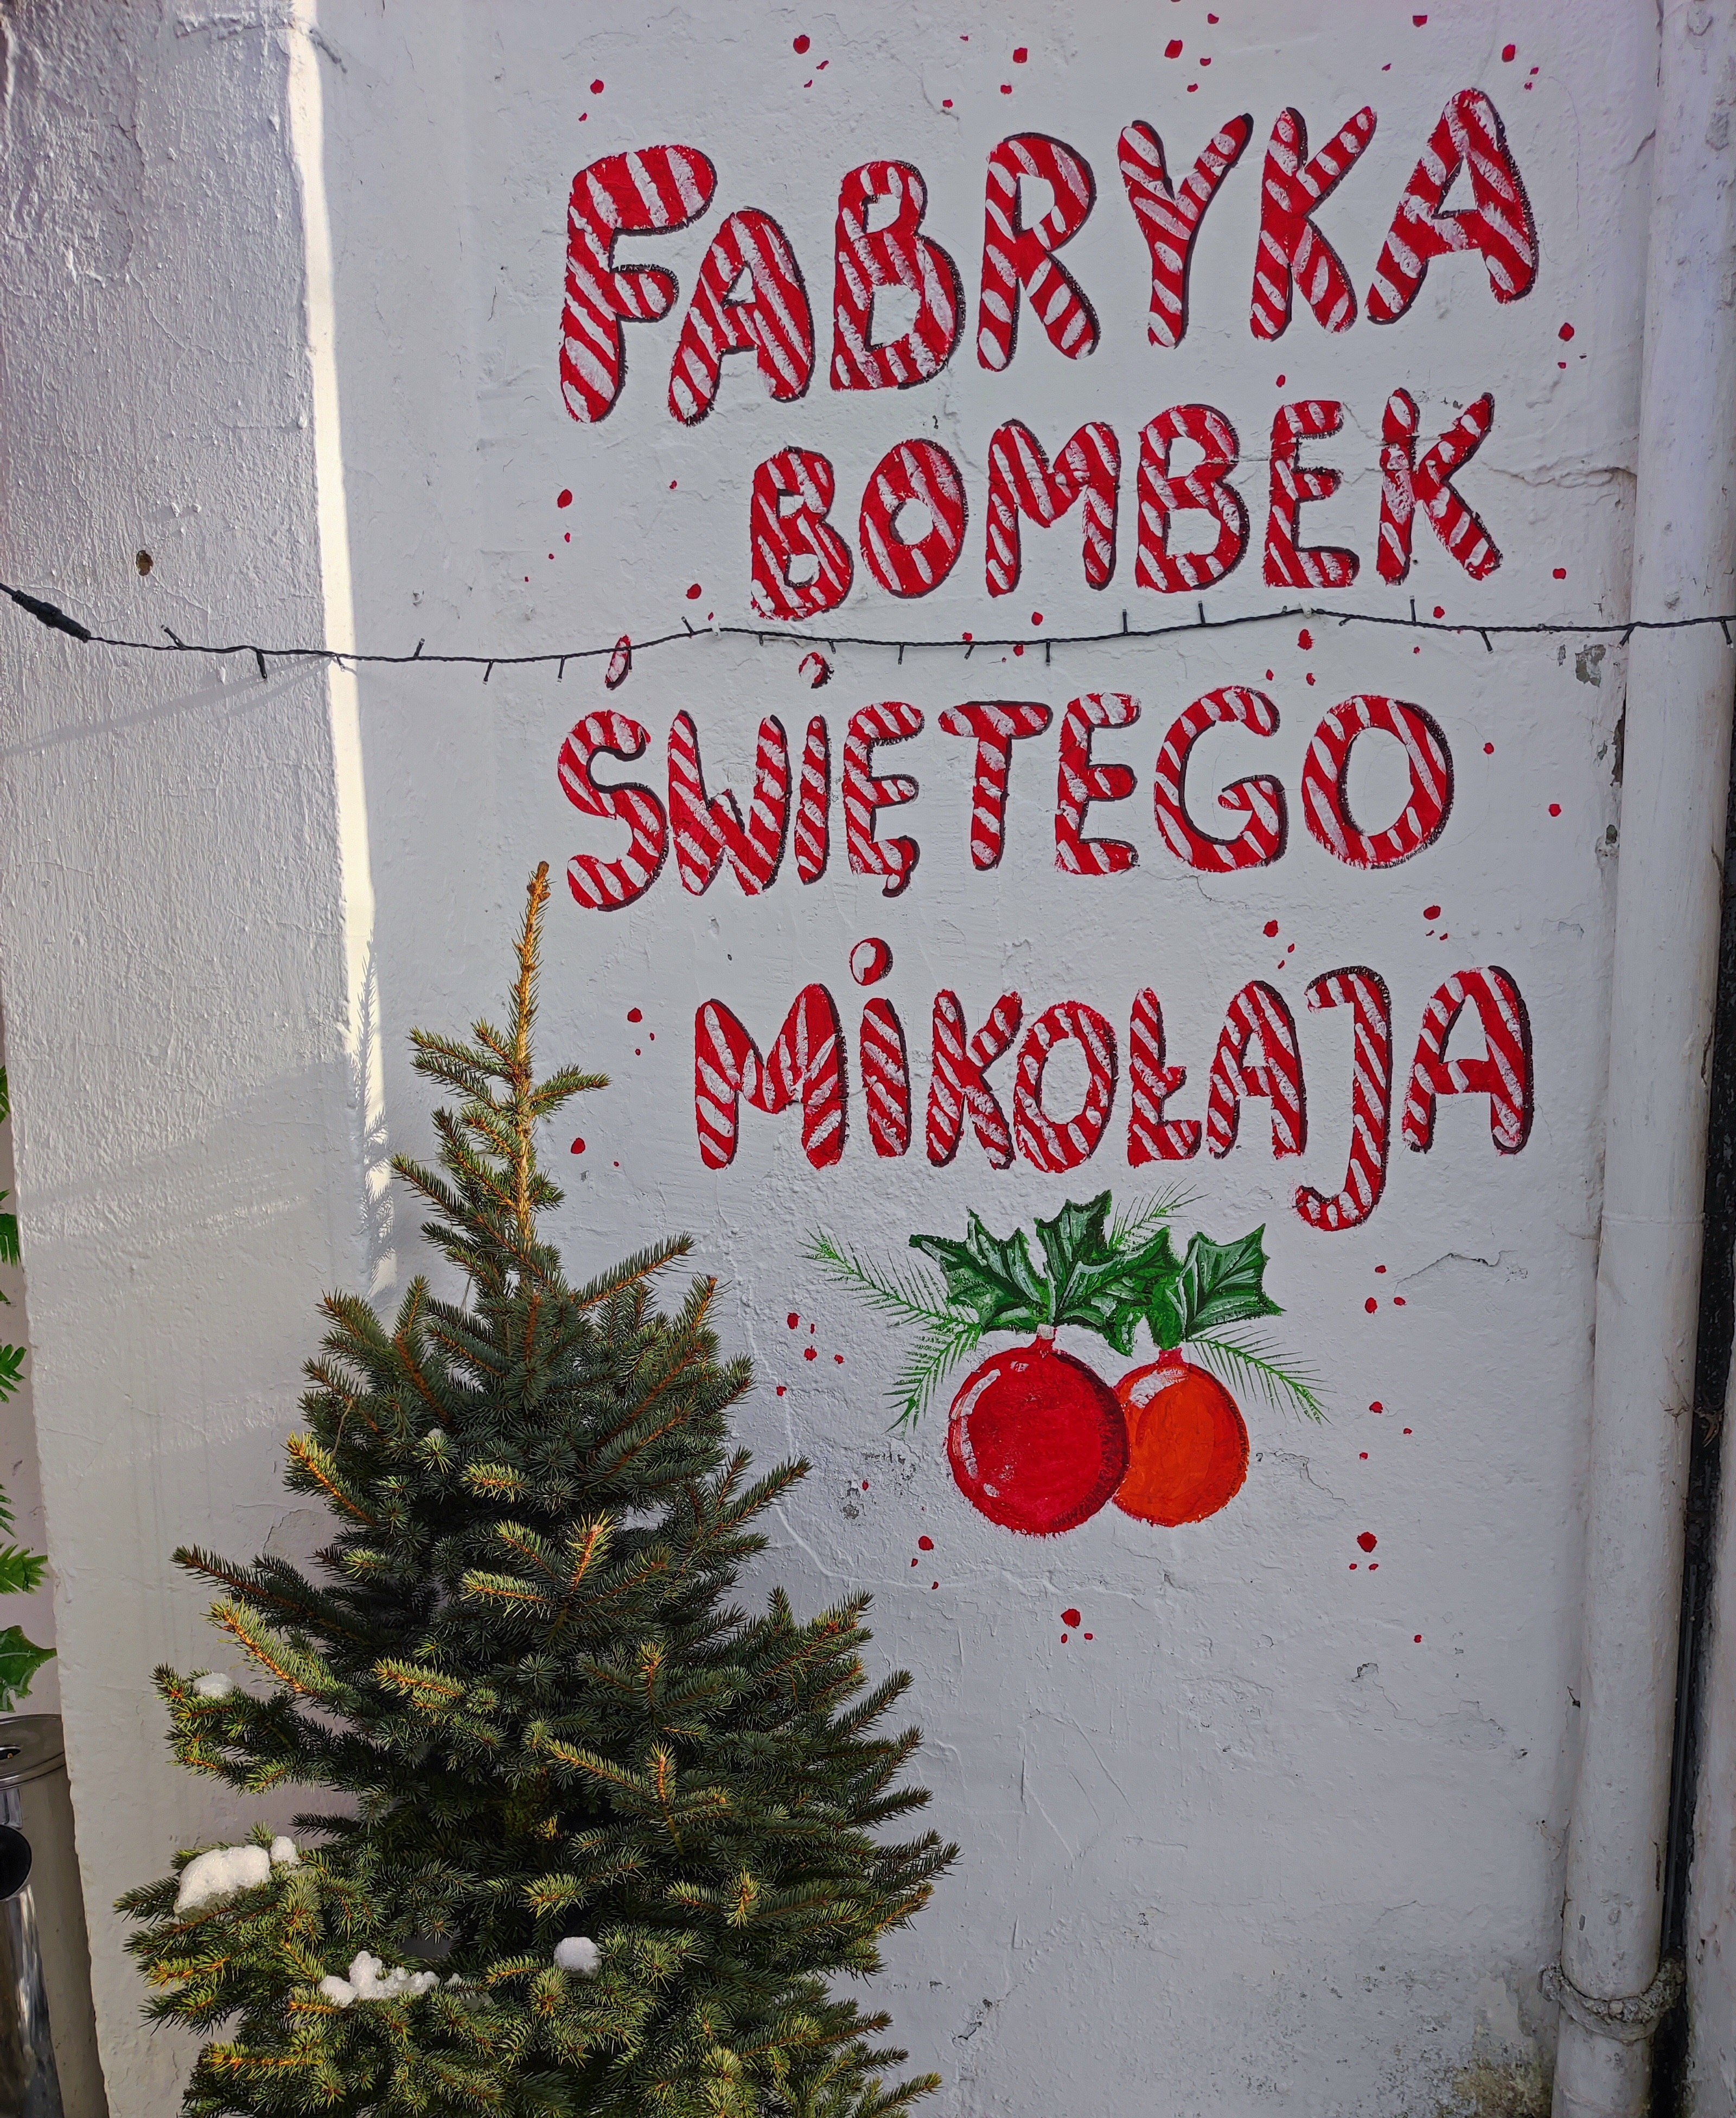 FABRYKA
BOMBEK
ŚWIĘTEGO
MIKOŁAJA